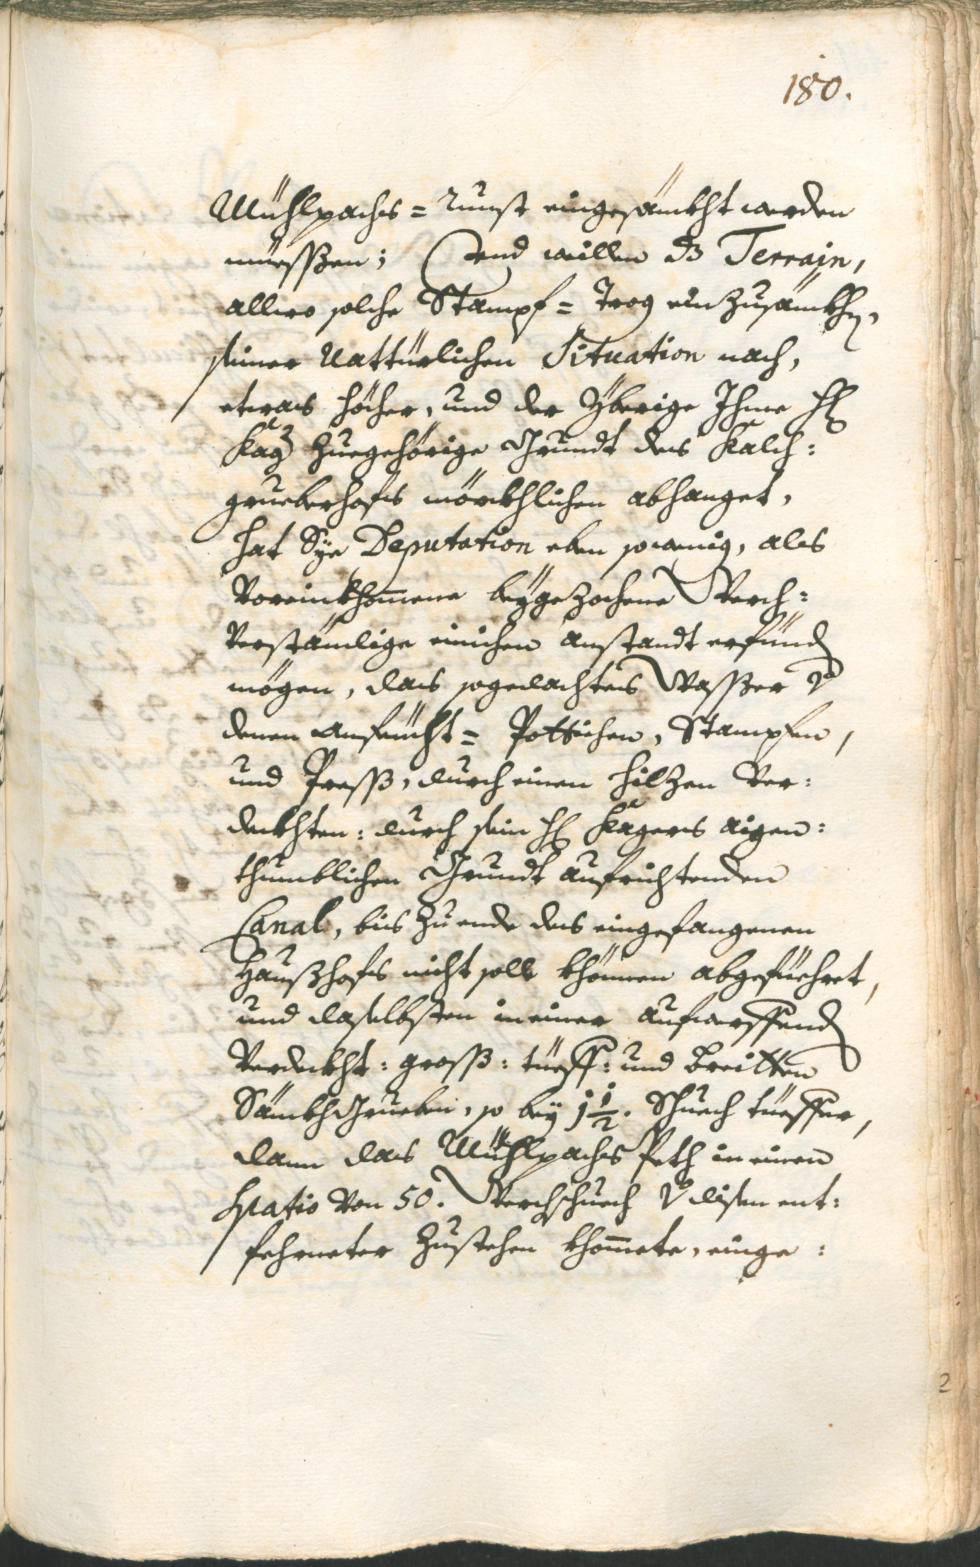 180.
Mühlpachs = Runst eingesänkht werden
müessßen; Und weillen dz Terrain,
allwo solche Stampf = Trög einzusänkhen,
seiner Nattürlichen Situation nach,
etwas höcher, und der Yberige Ihme H:
Käg zuegehörige Grundt des Kalch:
grueberhofs mörkhlichen abhanget,
hat Sye Deputation eben sowenig, als
Voreinkhomene beygezochene Werch:
Verständige einichen anstandt erfinden
mögen, das sogedachtes Wasser V:
denen anfeücht = Pottichen, Stampfen,
und Press, durch einen hilzen Ver:
dekhten: durch sein H: Kägers aigen:
thumblichen Grundt aufrichtenden
Canal, bis zu ende des eingefangenen
Haußhofs nicht solle khönnen abgefüehret,
und daselbsten in einer aufwerffenden
Verdekht: gross: tüeff: und breitten
Sänkh Grueben, so bey 1 1/2. Schuech tüeffer,
dann das Mühlpachs Peth in einen
Spatio Von 50. Werchschuech V: disen ent:
fehrneter zustehen khomete, einge:
2